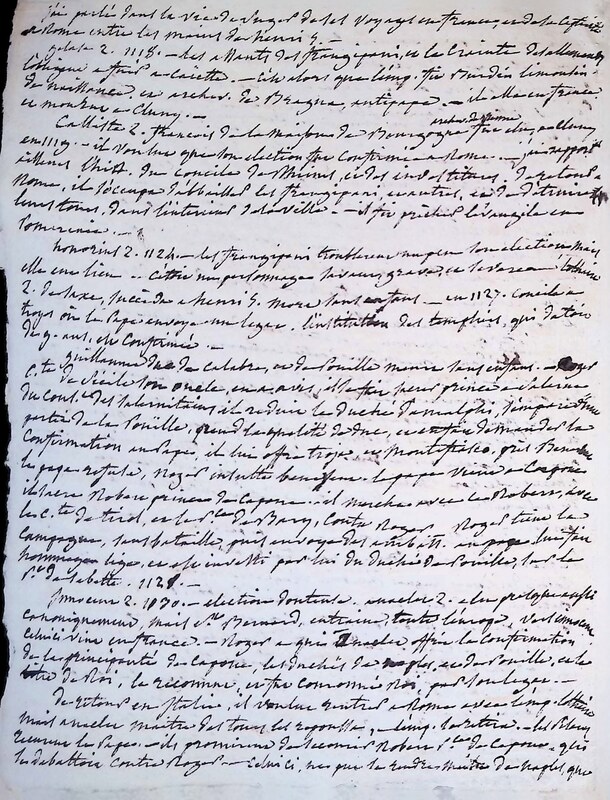 j'ai parlé dans la vie de Suger de ses voyages en france, et de la
a Rome entre les mains de henri 5.
gelase 2. 1118. — des assauts des frangipani, et la crainte des allemands
l'obligea a fuir a Gaette. — c'est alors que l'emp. fit Burdin limousin
de naissance, et archev. de Bragua, antipape. — il alla en france
et mourut a Cluny. —
Calliste 2. françois de la maison de Bourgogne archev. de vienne fut elu, a Cluny
en 1119. — il voulut que son election fut confirmée a Rome. — j'ai rapporté
ailleurs l'hist. du concile de Rheims, et des investitures. de retour a
Rome, il s'occupa d'abbaisser les frangipani, et autres, et de détruire
leurs tours, dans l'interieur de la ville. — il fit prêcher l'évangile en
Pomeranie. —
honorius 2. 1124. — les frangipani troublerent un peu son election mais
elle eut lieu. — c'etoit un personnage savant, grave, et Lothaire
2. de saxe, succéda a henri 5. mort sans enfans. — en 1127. concile a
troyes ou le Pape envoya un legat. l'institution des templiers, qui datoit
de 9. ans, est confirmée. —
guillaume duc de calabre, et de Pouille meurt sans enfans. — Roger
c.te de Sicile son oncle, en a avis, et se fait sacrer prince a Salerne
du cons. des salernitains, il reduit le duché d'amalphi, s'empare d'une
partie de la Pouille, prend la qualité de Duc, et en fait demander la
confirmation au Pape, il lui offre troye, et Montefusco, près Benevent
le pape refuse, Roger insulte benevent. le pape vient a Capoue
il sacre Robert prince de Capoue. — il marche avec ce Robert, avec
le c.te de et le p.ce de Bary, contre Roger. Roger tient la
campagne, sans bataille, puis envoye des ambass. au pape lui fait
hommage lige, et est investi par lui du Duché de Pouille, sur le
1128. —
Innocent 2. 1030. — election douteuse. anaclet 2. elu presque aussi
canoniquement, mais St. Bernard, entraine toute l'europe, vers innocent
celui ci vint en france — Roger a qui Anaclet offre la confirmation
de la principauté de Capoue, les duchés de naples, et de Pouille, et le
titre de Roi, le reconnut, et fut couronné Roi, par son legat. —
De retour en Italie, il voulut entrer a Rome avec l'emp. Lothaire
mais anaclet maitre des tours, les repoussa, — l'emp. se retira. — les Pisans
recurent le Pape. — ils promirent des secours Robert p.ce de Capoue, qui
se debattoit contre Roger — celui ci, ne put se rendre maitre de naples, que